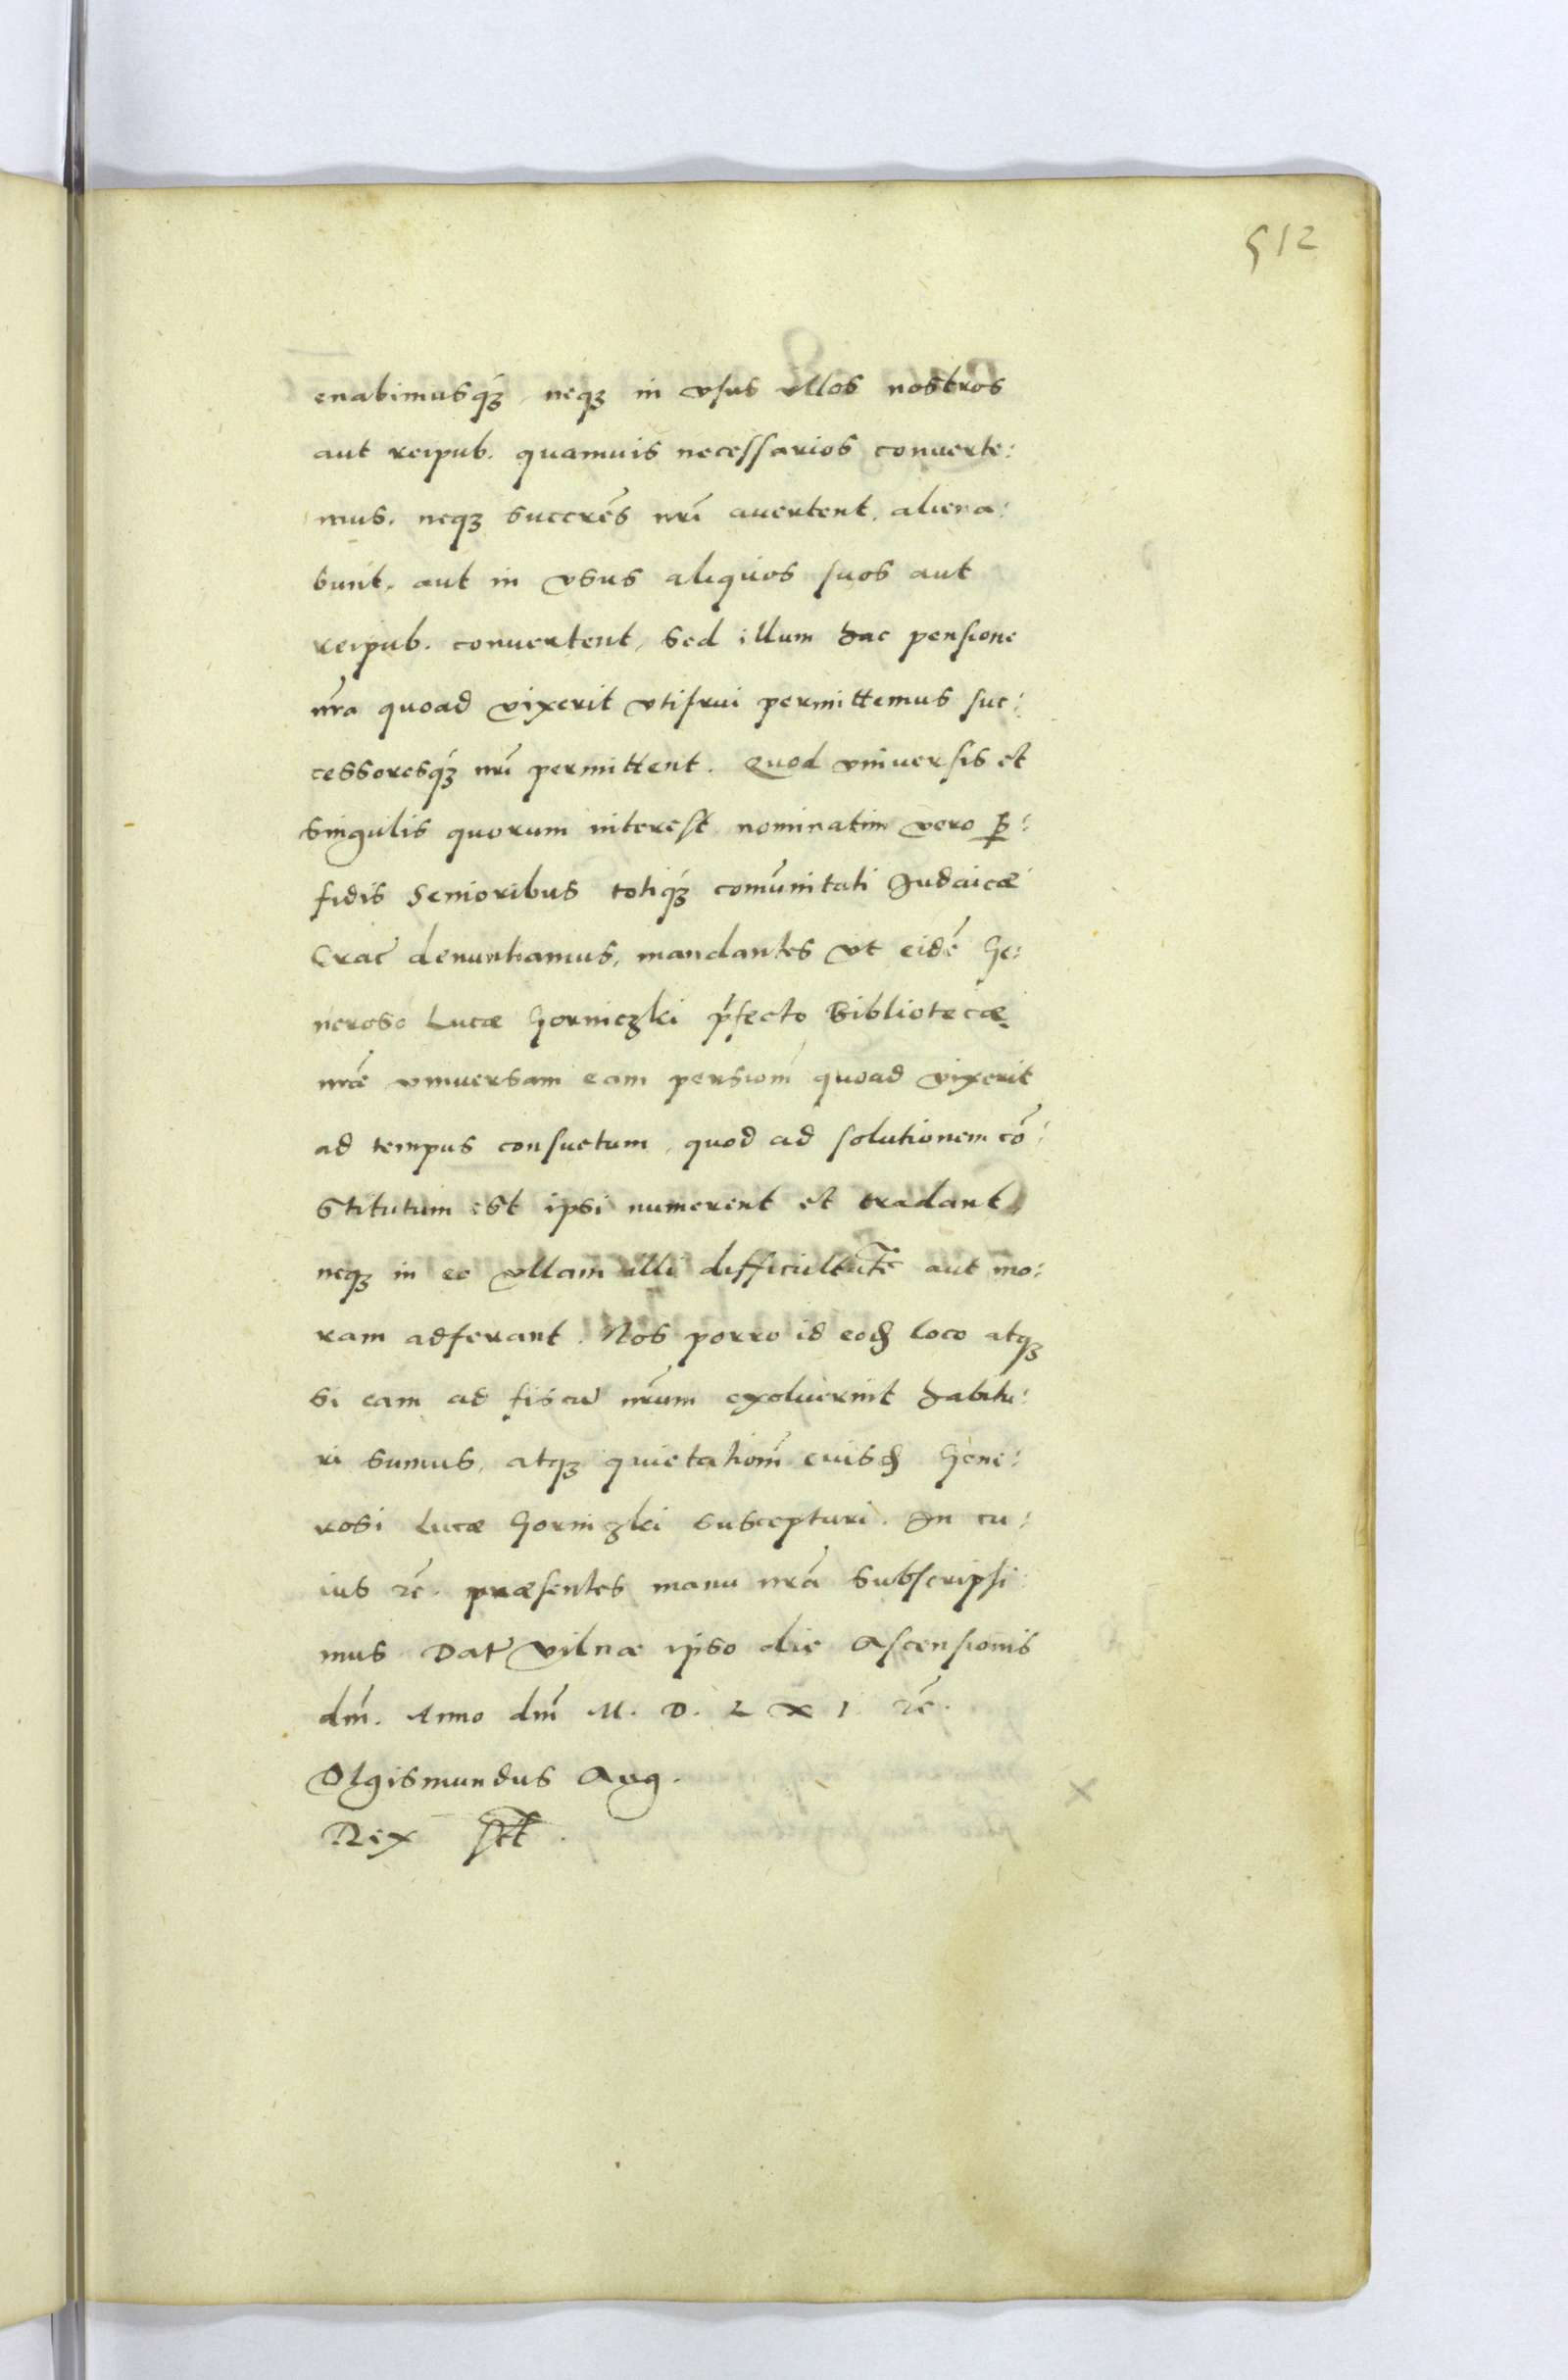 512
enabimusq́ꝫ, neqꝫ in vsus vllos nostros
aut reipub. quamuis necessarios conuerte:
mus. neqꝫ succrēs nrī auertent. aliena:
bunt. aut in vsus aliquos suos aut
reipub. conuertent, sed illum hac pensione
nrā quoad vixerit vtifrui permittemus suc:
cessoresq́ꝫ nrī permittent. Quod vniuersis et
singulis quorum interest nominatim vero ꝑ:
fidis Senioribus totiq́ꝫ comūnitati Iudaicæ
Crac̄ denuntiamus, mandantes vt eidē Ge:
neroso Lucæ Gorniczki p̄fecto Bibliotecæ
nrǣ vniuersam eam pensionm̄ quoad vixerit
ad tempus consuetum, quod ad solutionem cō:
stitutum est ipsi numerent et tradant
neqꝫ in eo vllam illi difficultatē aut mo:
ram adferant. Nos porro id eod loco atqꝫ
si eam ad fiscū nrūm exoluerint habitu:
ri sumus, atqꝫ quietationm̄ euisd Gene:
rosi Lucæ Gorniczki suscepturi. In cu:
ius rē. præsentes manu nrā subscripsi:
mus Dat̄ Vilnæ ipso die Ascensionis
dnī. Anno dnī M. D. L X I. rē.
Sigismundus Aug.
Rex sst̄.